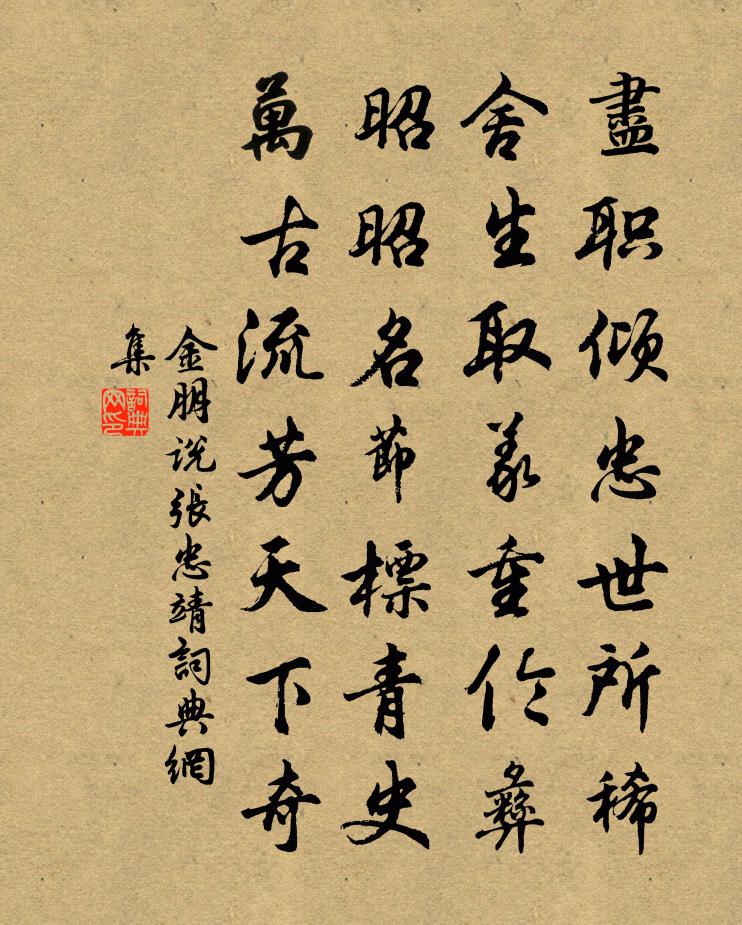 盡职倾忠世所稀
舍生取義重伦彝
昭昭名節標青史
萬古流芳天下奇
金朋说張忠靖詞典網
集
詞典
网印